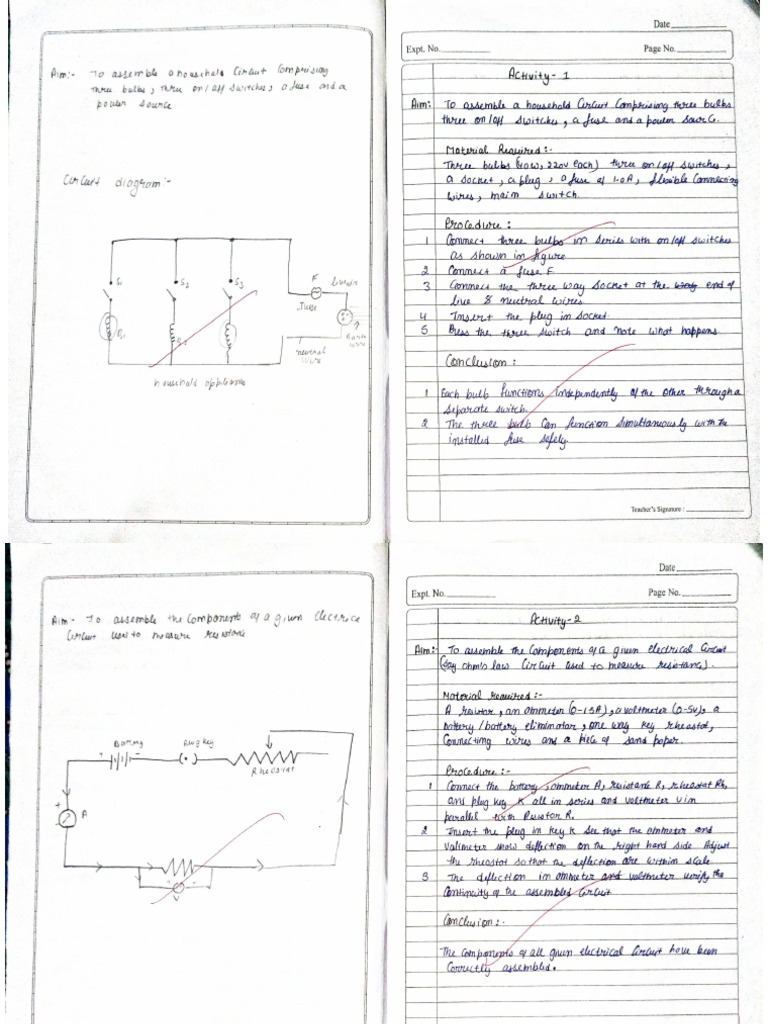 Aim:- To assemble a household Circuit Comprising
three bulbs, three on/off switches, a fuse and a
power source
Circuit diagram:-
S1
S2
S3
F
fuse
live wire
B1
B2
neutral
wire
Earth
wire
household appliance
Date
Expt. No.
Page No.
Activity - 1
Aim: To assemble a household Circuit Comprising three bulbs
three on/off switches, a fuse and a power source.
Material Required:-
Three bulbs (40w, 220v each) three on/off switches,
a socket, a plug, a fuse of 1.0A, flexible Connecting
wires, main switch.
Procedure:
1 Connect three bulbs in series with on/off switches
as shown in figure
2 Connect a fuse F
3 Connect the three way socket at the end of
live & neutral wires
4 Insert the plug in socket
5 Press the three switch and note what happens
Conclusion:
1 Each bulb functions independently of the other through a
separate switch.
2 The three bulb Can function simultaneously with the
installed fuse safely.
Teacher's Signature :
Aim:- To assemble the Components of a given Electrice
Circuit used to measure resistance
Battery
Plug Key
Rheostat
+
-
A
+
-
V
Date
Expt. No.
Page No.
Activity-2
Aim: To assemble the Components of a given electrical Circuit
(say ohm's law Circuit used to measure resistance).
Material required:-
A resistor, an ammeter (0-1.5A), a voltmeter (0-5v), a
Battery/battery eliminator, one way key rheostat,
Connecting wires and a piece of sand paper.
Procedure:-
1 Connect the battery, ammeter A, resistance R, rheostat Rh,
and plug key K all in series and voltmeter V in
parallel with Resistor R.
2 Insert the plug in key K see that the ammeter and
voltmeter show deflection on the right hand side Adjust
the rheostat so that the deflection are within scale
3 The deflection in ammeter and voltmeter verify the
Continuity of the assembled Circuit
Conclusion:-
The components of all given electrical Circuit have been
Correctly assembled.